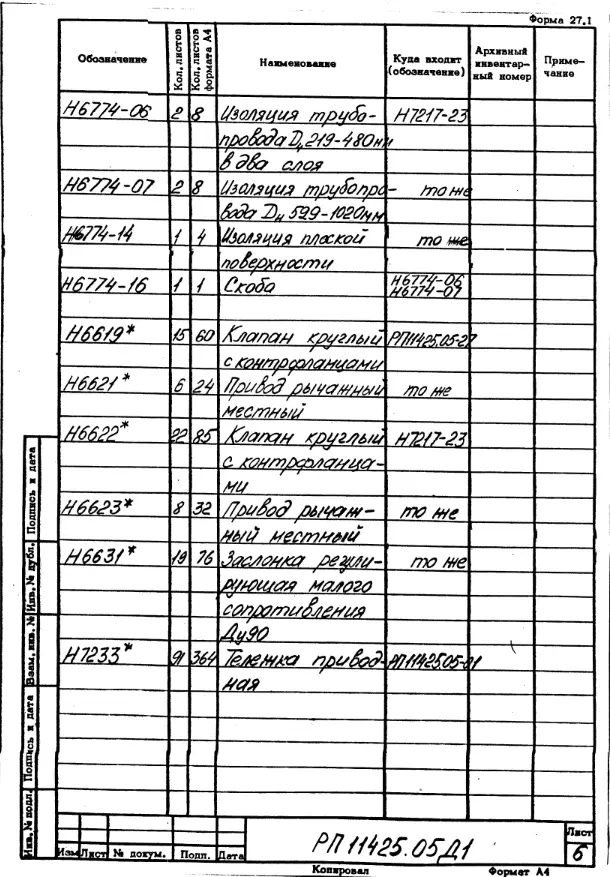 Форма 27.1
Обозначение Кол. листов Кол. листов формата А4 Наименование Куда входит (обозначение) Архивный инвентарный номер Примечание
Н6774-06 2 8 Изоляция трубо- Н7217-23
провода Dн 219-480мм
в два слоя
Н6774-07 2 8 Изоляция трубопро- то же
вода Dн 529-1020мм
Н6774-14 1 4 Изоляция плоской то же
поверхности
Н6774-16 1 1 Скоба Н6774-06
Н6774-07
Н6619* 15 60 Клапан круглый РП11425.05-27
с контрфланцами
Н6621* 6 24 Привод рычажный то же
местный
Н6622* 22 85 Клапан круглый Н7217-23
с контрфланца-
ми
Н6623* 8 32 Привод рычаж- то же
ный местный
Н6631* 19 76 Заслонка регули- то же
рующая малого
сопротивления
Ду90
Н7233* 91 364 Тележка привод- РП11425.05-01
ная
Инв. № подл. Подпись и дата Взам. инв. № Инв. № дубл. Подпись и дата
РП 11425.05Д1
Лист
6
Изм Лист № докум. Подп. Дата
Копировал Формат А4